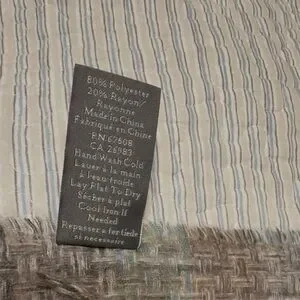 80% Polyester
20% Rayon/
Rayonne
Made in China
Fabriqué en Chine
RN:67608
CA 26983
Hand Wash Cold
Laver à la main
à l'eau froide
Lay Flat To Dry
Sécher à plat
Cool Iron If
Needed
Repasser à fer tiède
si nécessaire